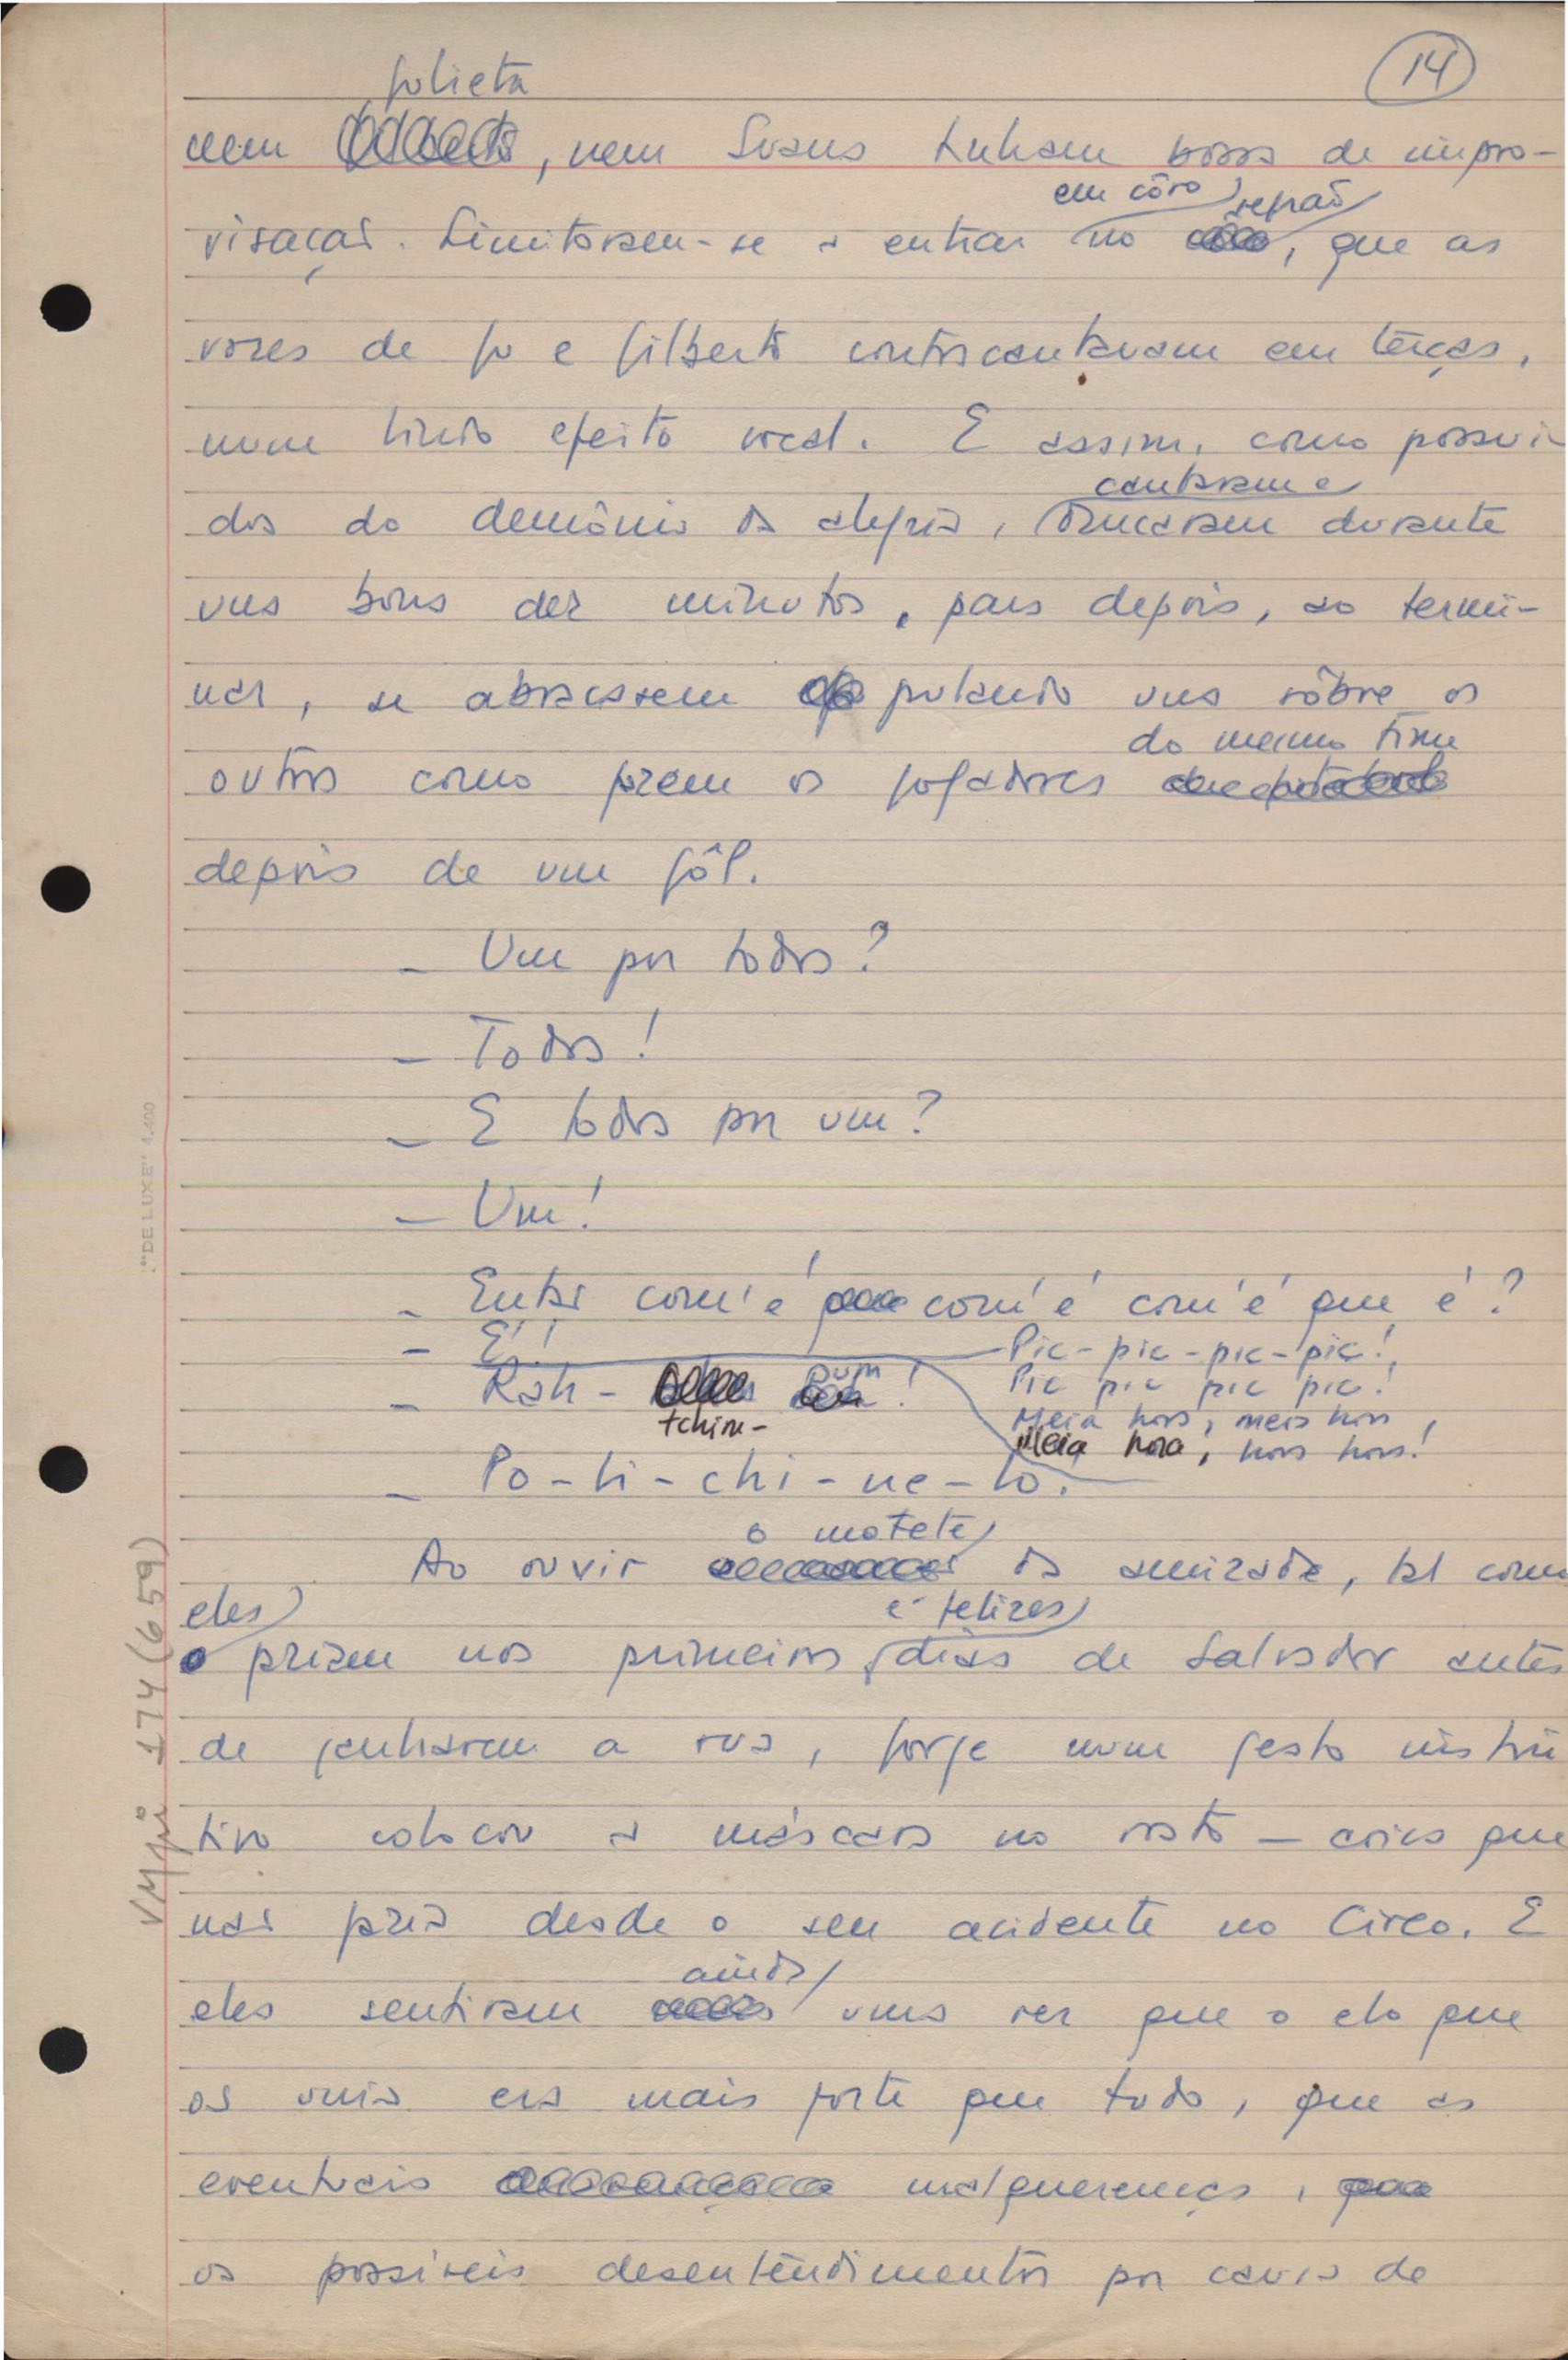 14
Julieta
nem , nem Susana tinham bossa de impro-
em côro refrão
visação. Limitavam-se a entrar no , que as
vozes de Ju e Gilberto contracantavam em têrças,
num lindo efeito vocal. E assim, como possui-
cantaram e
dos do demônio da alegria, brincaram durante
uns bons dez minutos, para depois, ao termi-
nar, se abraçarem pulando uns sôbre os
do mesmo time
outros como fazem os jogadores
depois de um gôl.
- Um por todos?
- Todos!
- E todos por um?
- Um!
- Então com'é com'é com'é que é?
- É! Pic-pic-pic-pic!
- Rah- pum! Pic pic pic pic!
tchim- Meia hora, meia hora,
Meia hora, hora hora!
- Po-li-chi-ne-lo.
o motete
Ao ouvir da amizade, tal como
eles e felizes
faziam nos primeiros dias de Salvador antes
de ganharem a rua, Jorge num gesto instin
tivo colocou a máscara no rosto - coisa que
não fazia desde o seu acidente no Circo. E
ainda
eles sentiram uma vez que o elo que
os unia era mais forte que tudo, que as
eventuais malquerenças,
os possíveis desentendimentos por causa de
VMpi 174 (659)
"DE LUXE" 1.400